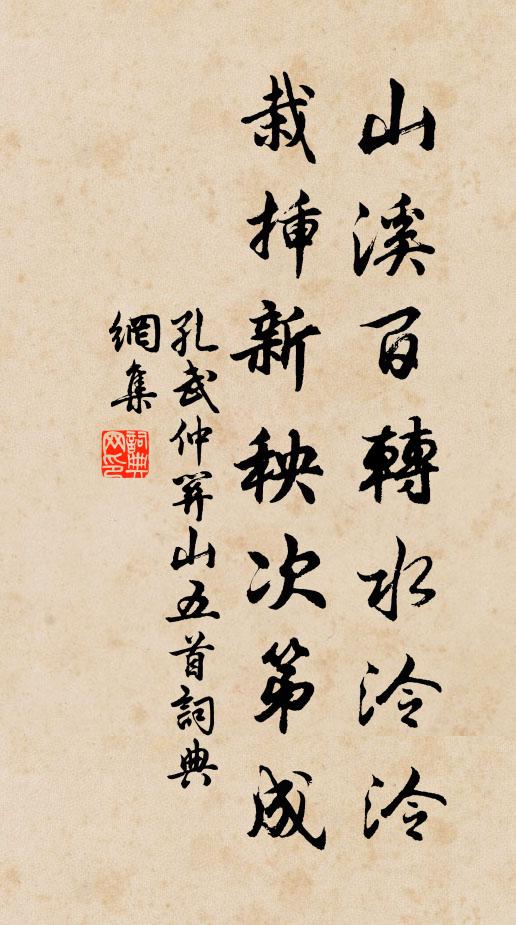 山溪百轉水泠泠
栽挿新秧次第成
孔武仲羿山五首詞典
網集
詞典
网印